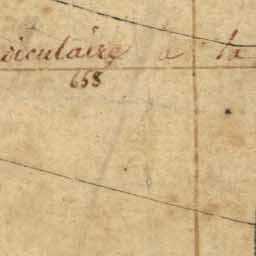 diculaire a la
658